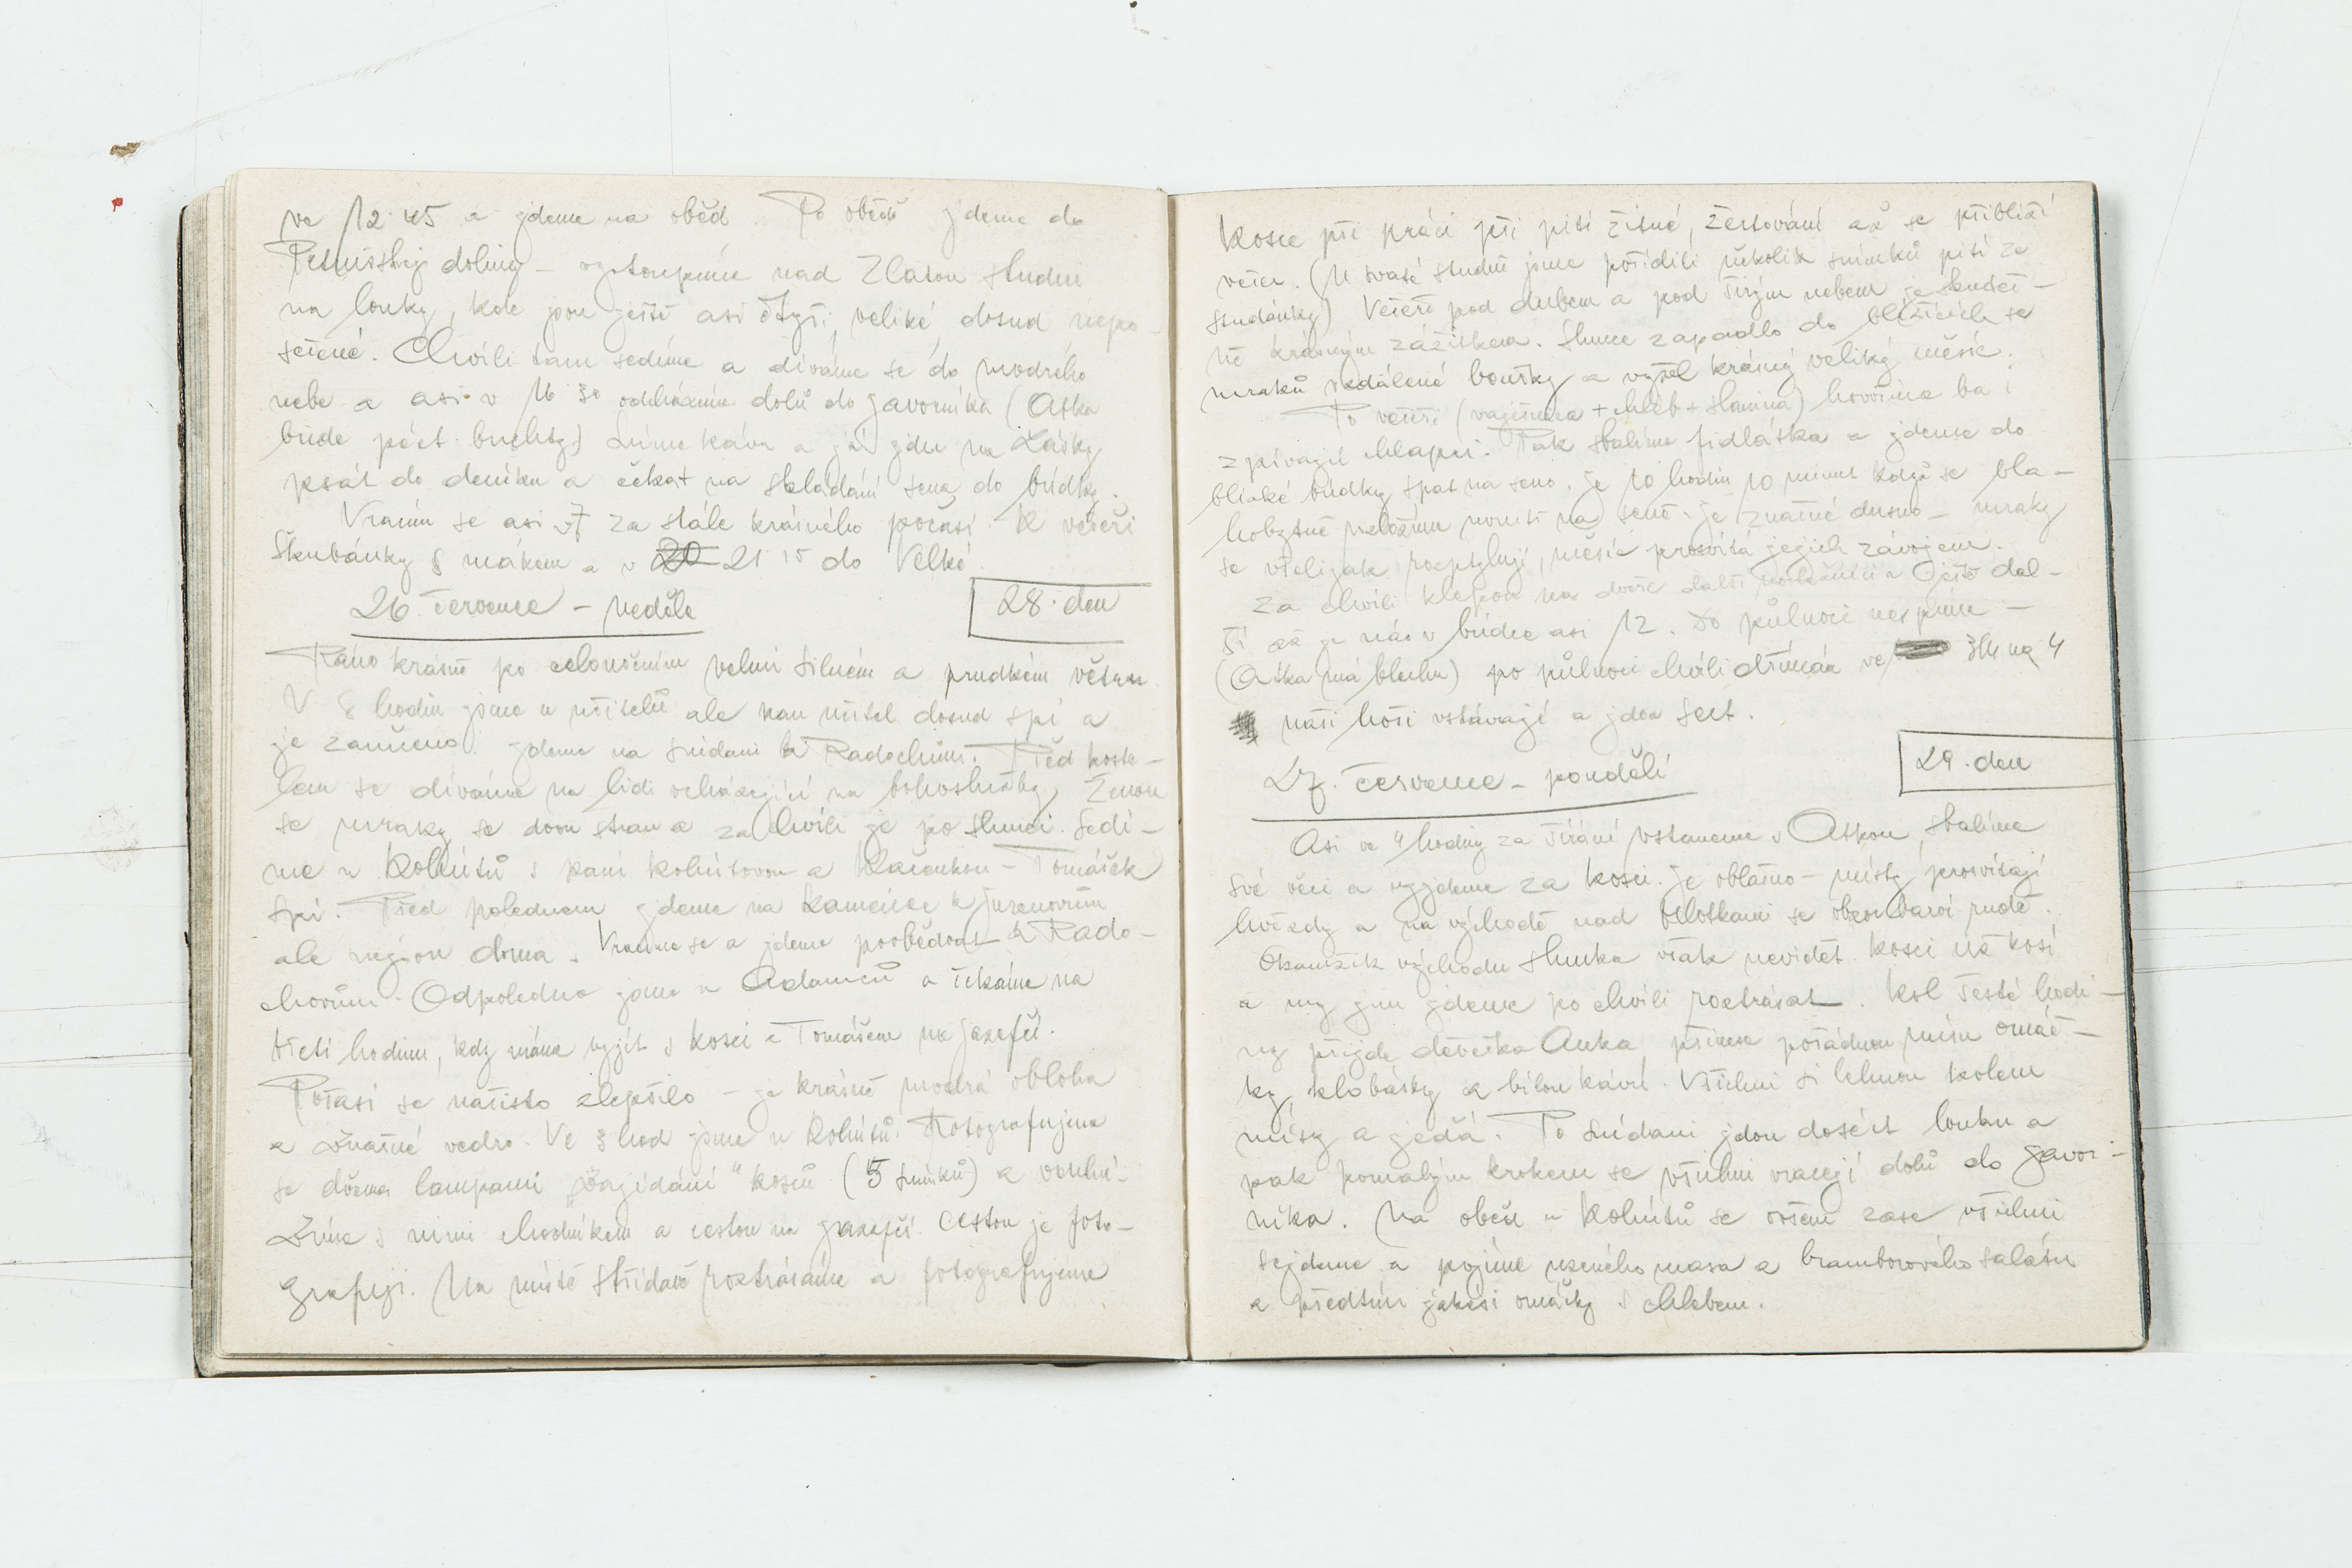 ve 12.45 a jdeme na oběd. Po obědě jdeme do
doliny – vystoupíme nad Zlatou studni
na louky, kde jsou ještě asi čtyři, veliké, dosud nepo-
sečené. Chvíli tam sedíme a díváme se do modrého
nebe a asi v 16 30 odcházíme dolů do Javorníka (Aťka
bude péct buchty) kávu a já jdu na Lásky
psát do deníku a čekat na skládání sena do búdky.
Vracím se asi v 7 za stále krásného počasí. K večeři
škubánky s mákem a v 20 21 15 do Velké.
26. července – neděle
28. den
Ráno krásně po celonočním velmi silném a prudkém větru.
V 8 hodin jsme u učitelů ale pan učitel dosud spí a
je zamčeno. Jdeme na snídani k Radochům. Před koste-
lem se díváme na lidi vcházející na bohoslužby. Ženou
se mraky se dvou stran a za chvíli je po slunci. Sedí-
me u Kohútů s paní Kohútovou a Kačenkou – Tomášek
spí. Před polednem jdeme na Kamenec k
ale nejsou doma. Vracíme se a jdeme poobědvat k Rado-
chovům. Odpoledne jsme u Adamců a čekáme na
třetí hodinu, kdy máme vyjít s kosci a Tomášem na Jazefčí.
Počasí se načisto zlepšilo – je krásně modrá obloha
a značné vedro. Ve 3 hod jsme u Kohútů. Fotografujeme
se dvěma lampami „zajídání" kosců (5 snímků) a
s nimi chodníkem a cestou na Jazefčí. Cestou je foto-
grafuji. Na místě střídavě roztrásáme a fotografujeme
kosce při práci při pití žitné, žertování až se přiblíží
večer. (U svaté studně jsme pořídili několik snímků pití ze
studánky) Večeře pod dubem a pod širým nebem je skuteč-
ně krásným zážitkem. Slunce zapadlo do blížících se
mraků vzdálené bouřky a vyšel krásný veliký měsíc.
Po večeři (vaječina + chléb + slanina) hovoříme ba i
zpívají chlapci. Pak sbalíme fidlátka a jdeme do
blízké búdky spat na seno. Je 10 hodin 10 minut když se bla-
hobytně na seně. Je značně dusno – mraky
se všelijak rozptylují, měsíc prosvítá jejich závojem.
Za chvíli klepou na dveře další a ještě dal-
ší až je nás v búdce asi 12. Do půlnoci nespíme –
(Aťka má blechu) po půlnoci chvíli dřímám ve 3/4 na 4
naši hoši vstávají a jdou séct.
27. července – pondělí
29. den
Asi ve 4 hodiny za šírání vstaneme s Aťkou, sbalíme
své věci a vyjdeme za kosci. Je oblačno – místy prosvítají
hvězdy a na východě nad se obzor barví rudě.
Okamžik východu slunka však nevidět. Kosci už kosí
a my jim jdeme po chvíli roztrásat. Kol šesté hodi-
ny přijde děvečka Anka přinese pořádnou mísu omáč-
ky, klobásky a bílou kávu. Všichni si lehnou kolem
mísy a jedí. Po snídani jdou doséct louku a
pak pomalým krokem se všichni vracejí dolů do Javor-
níka. Na oběd u Kohútů se ovšem zase všichni
sejdeme a pojíme uzeného masa a bramborového salátu
a předtím jakési omáčky s chlebem.